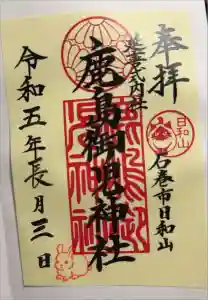 奉拝
日和山
石巻市日和山
延喜式内社
鹿島御児神社
令和五年長月三日